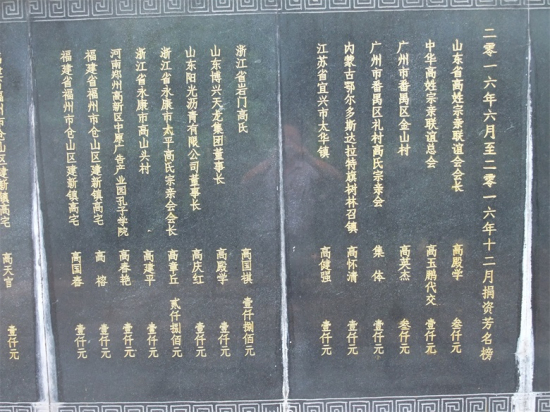 二零一六年六月至二零一六年十二月捐资芳名榜
山东省高姓宗亲联谊会会长 高殿学 叁仟元
中华高姓宗亲联谊总会 高玉鹏代交 壹仟元
广州市番禺区金山村 高英杰 叁仟元
广州市番禺区礼村高氏宗亲会 集体 壹仟元
内蒙古鄂尔多斯达拉特旗树林召镇 高怀清 壹仟元
江苏省宜兴市太华镇 高健强 壹仟元
浙江省岩门高氏 高国祺 壹仟捌佰元
山东博兴天龙集团董事长 高殿学 壹仟元
山东阳光沥青有限公司董事长 高庆红 壹仟元
浙江省永康市太平高氏宗亲会会长 高章丘 贰仟捌佰元
浙江省永康市高山头村 高建平 壹仟元
河南郑州高新区中原广告产业园孔子学院 高春艳 壹仟元
福建省福州市仓山区建新镇高宅 高榕 壹仟元
福建省福州市仓山区建新镇高宅 高国春 壹仟元
高天官 壹仟元